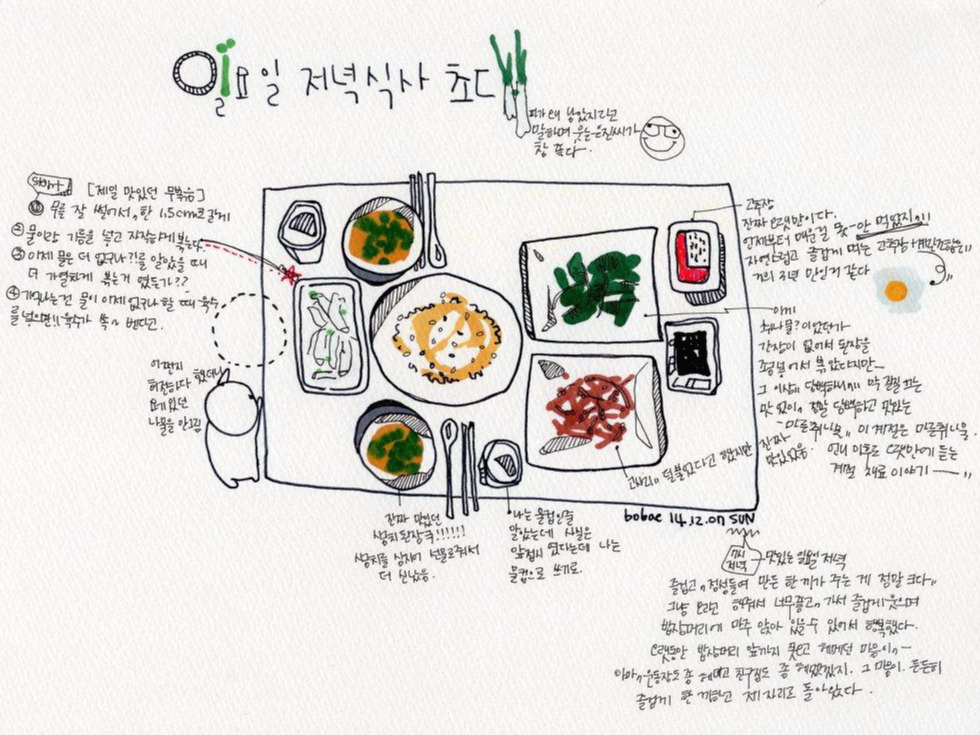 일요일 저녁식사 초대
파가 더 남았지라고
말하며 웃는 은진씨가
참 좋다.
start
[제일 맛있던 무볶음]
① 무를 잘 썰어서, 한 1.5cm로 길게
② 물이랑 기름을 넣고 자작하게 볶는다.
③ 이제 물은 더 없구나?!를 알았을 때
더 가열차게 볶는거 였든가??
④ 기억나는건 물이 이제 없구나 할 때 육수
를 넣으면!! 육수가 쏙~ 밴다고.
어쩐지
허전하다 했더니
요기 있던
나물을 안그림
고추장
진짜 오랫만이다.
언제부터 매운걸 못~안 먹었지!!!
자연스럽고 즐겁게 먹는 고추장
거의 3년 만인거 같다
이게
취나물?이었던가
간장이 없어서 된장을
조금 넣어서 볶았다지만~
그 이상!! 담백하니!!! 막
맛 없이, 정말 담백하고 맛있는
-마른취나물,, 이 계절은 마른취나물.
언니
계절 재료 이야기
진짜
맛있었음.
고사리!! 덜불었다고 했지만
진짜 맛있던
된장국!!!!!!
선물로줘서
더 신났음.
나는 물컵인줄
알았는데 사실은
앞접시 였다는데 나는
물컵으로 쓰기로.
bobae 14.12.07 SUN
7시
저녁
맛있는 일요일 저녁
즐겁고,, 정성들여 만든 한 끼가 주는 게 정말 크다!!
그냥 오라고 해줘서 너무좋고,, 가서 즐겁게 웃으며
밥상머리에 마주 앉아 있을 수 있어서 행복했다.
오랫동안 밥상머리 앞까지 못오고 헤매던 마음이,,~
아마,, 운동장도 좀 헤매고 친구집도 좀 헤맸겠지. 그 마음이. 든든히
즐겁게 한 끼먹고 제자리로 돌아왔다.